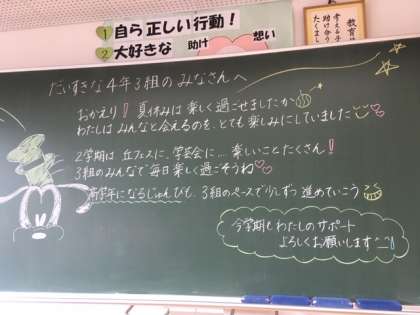 ① 自ら正しい行動！
② 大好きな 助け 想い
教育
考える子
助け合う
たくまし
だいすきな4年3組のみなさんへ
おかえり！夏休みは楽しく過ごせましたか
わたしはみんなと会えるのを、とても楽しみにしていました
2学期は 丘フェスに、学芸会に…楽しいことたくさん！
3組のみんなで毎日楽しく過ごそうね♡
高学年になるじゅんびも、3組のペースで少しずつ進めていこう
今学期もわたしのサポート
よろしくお願いします